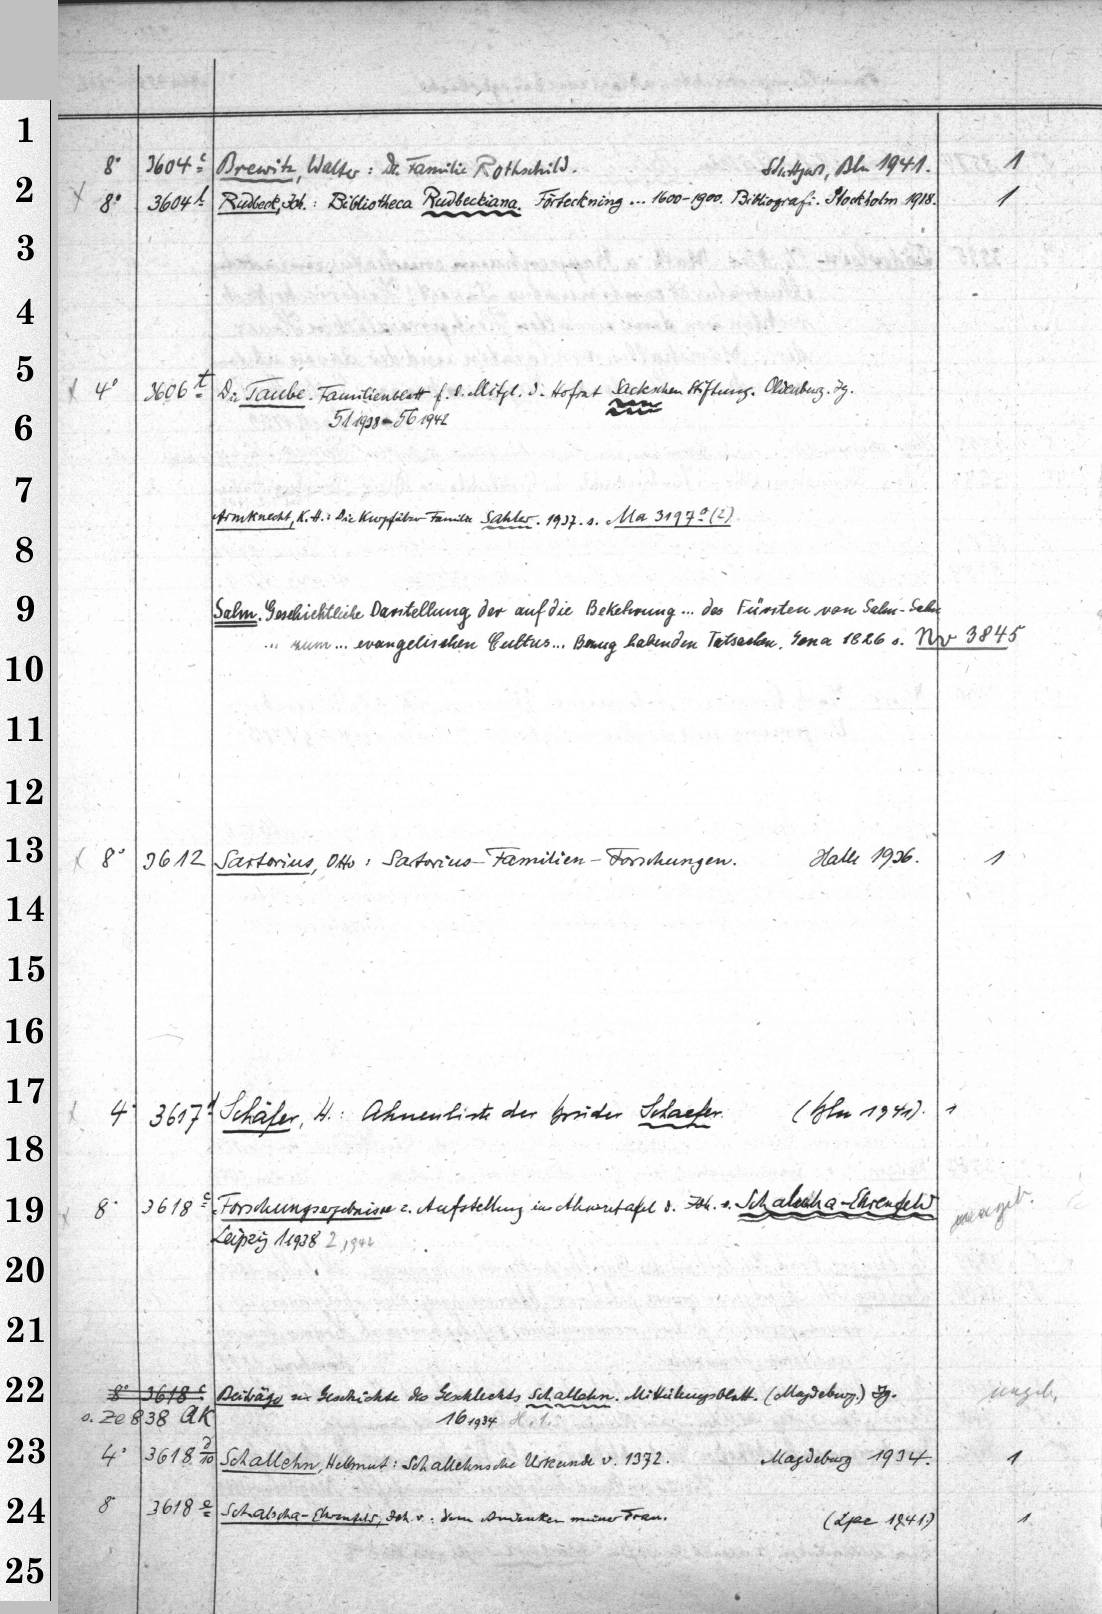 1
8° 3604 c Brewitz, Walter: Die Familie Rothschild. Stuttgart, Bln 1941. 1
2
x 8° 3604 h Rudbeck, Joh.: Bibliotheca Rudbeckiana. Förteckning ... 1600-1900. Bibliografi. Stockholm 1918. 1
3
4
5
x 4° 3606 t Die Taube. Familienblatt f. d. Mitgl. d. Hofrat Sackschen Stiftung. Oldenburg. Jg.
51 1938-56 1942
6
7
Armknecht, K.H.: Die Kurpfälzer Familie Sahler. 1937. s. Ma 3197 a (2)
8
9
Salm. Geschichtliche Darstellung der auf die Bekehrung ... des Fürsten von Salm-Salm
... zum ... evangelischen Cultus ... Bezug habenden Tatsachen. Jena 1826 s. Nv 3845
10
11
12
13
x 8° 3612 Sartorius, Otto: Sartorius-Familien-Forschungen. Halle 1936. 1
14
15
16
17
x 4° 3617 Schäfer, H.: Ahnenliste der Brüder Schaefer. (Bln 1941). 1
18
19
x 8° 3618 c Forschungsergebnisse z. Aufstellung im Ahnentafel d. Joh. v. Schalscha-Ehrenfeld
Leipzig 1 1938 2, 1942
20
21
22
8° 3618 c Beiträge zur Geschichte des Geschlechts Schallehn. Mitteilungsblatt. (Magdeburg.) Jg. ungeb.
s. Ze 838 AK 16 1934 H. 1.
23
4° 3618 d/10 Schallehn, Hellmut: Schallehnsche Urkunde v. 1372. Magdeburg 1934. 1
24
8° 3618 e Schalscha-Ehrenfeld, Joh. v.: Dem Andenken meiner Frau. (Lpz 1941) 1
25